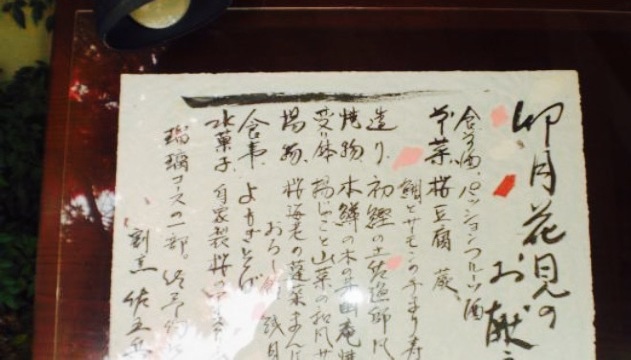 卯月花見の
お献
食前酒 パッションフルーツ酒
前菜 桜豆腐 蕨
鯛とサーモンの手まり寿
造り 初鰹の土佐漁師風
焼物 木鱒の木の芽幽庵焼
受け鉢 揚じゃこと山菜の和風サ
揚物 桜海老の蓬菜まんじ
おろし
食事 よもぎそば
水菓子 自家製桜のアイス
瑠璃コースの一部
割烹 佐五